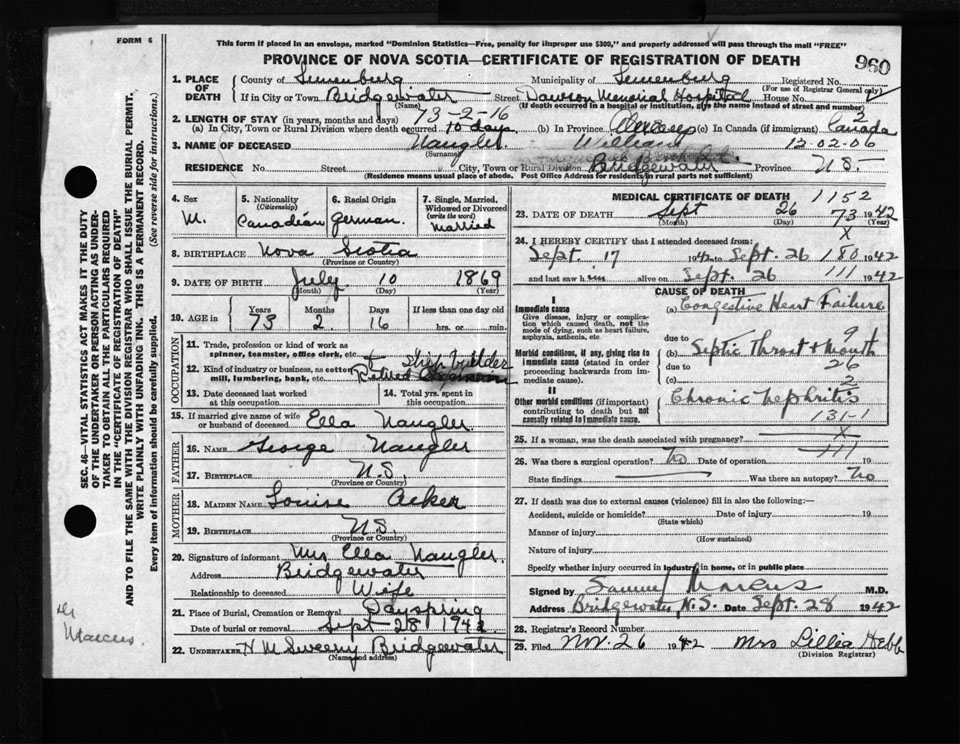 FORM 6
This form if placed in an envelope, marked "Dominion Statistics—Free, penalty for improper use $300," and properly addressed will pass through the mail "FREE"
PROVINCE OF NOVA SCOTIA—CERTIFICATE OF REGISTRATION OF DEATH
960
1. PLACE OF DEATH County of Lunenburg Municipality of Lunenburg Registered No.
(For use of Registrar General only)
If in City or Town Bridgewater Street Dawson Memorial Hospital House No.
(Name) (If death occurred in a hospital or institution, give its name instead of street and number)
2. LENGTH OF STAY (in years, months and days) 73-2-16
(a) In City, Town or Rural Division where death occurred 10 days (b) In Province Always (c) In Canada (if immigrant) Canada
3. NAME OF DECEASED Naugler William 12-02-06
(Surname)
RESIDENCE No. Street City, Town or Rural Division Bridgewater Province N.S.
(Residence means usual place of abode. Post Office Address for residents in rural parts not sufficient)
4. Sex M.
5. Nationality (Citizenship) Canadian
6. Racial Origin German.
7. Single, Married, Widowed or Divorced (write the word) Married
8. BIRTHPLACE Nova Scotia
(Province or Country)
9. DATE OF BIRTH July 10 1869
(Month) (Day) (Year)
10. AGE in Years Months Days If less than one day old
73 2 16 hrs. or min.
OCCUPATION
11. Trade, profession or kind of work as spinner, teamster, office clerk, etc. Ship builder
12. Kind of industry or business, as cotton mill, lumbering, bank, etc. Retired
13. Date deceased last worked at this occupation
14. Total yrs. spent in this occupation.
15. If married give name of wife or husband of deceased Ella Naugler
FATHER
16. NAME George Naugler
17. BIRTHPLACE N.S.
(Province or Country)
MOTHER
18. MAIDEN NAME Louise Acker
19. BIRTHPLACE N.S.
(Province or Country)
20. Signature of informant Mrs Ella Naugler
Address Bridgewater
Relationship to deceased Wife
21. Place of Burial, Cremation or Removal Dayspring
Date of burial or removal Sept 28 1942
22. UNDERTAKER H M Sweeny Bridgewater
(Name and address)
MEDICAL CERTIFICATE OF DEATH 1152
23. DATE OF DEATH Sept 26 73 1942
(Month) (Day) (Year)
X
24. I HEREBY CERTIFY that I attended deceased from:
Sept. 17 1942 to Sept. 26 180 1942
and last saw him alive on Sept. 26 111 1942
CAUSE OF DEATH
I
Immediate cause
Give disease, injury or complication which caused death, not the mode of dying, such as heart failure, asphyxia, asthenia, etc.
(a) Congestive Heart Failure
due to 9
Morbid conditions, if any, giving rise to immediate cause (stated in order proceeding backwards from immediate cause).
(b) Septic Throat & Mouth
due to 26
(c) 2
II
Other morbid conditions (if important) contributing to death but not causally related to immediate cause.
Chronic Nephritis
131-1
25. If a woman, was the death associated with pregnancy? X
111
26. Was there a surgical operation? No Date of operation 19
State findings Was there an autopsy? No
27. If death was due to external causes (violence) fill in also the following:—
Accident, suicide or homicide? Date of injury 19
(State which)
Manner of injury
(How sustained)
Nature of injury
Specify whether injury occurred in industry, in home, or in public place
Signed by Samuel Marcus M.D.
Address Bridgewater N.S. Date Sept. 28 1942
28. Registrar's Record Number
29. Filed Nov. 26 1942 Mrs Lillia Hebb
(Division Registrar)
SEC. 46—VITAL STATISTICS ACT MAKES IT THE DUTY
OF THE UNDERTAKER OR PERSON ACTING AS UNDERTAKER TO OBTAIN ALL THE PARTICULARS REQUIRED
IN THE "CERTIFICATE OF REGISTRATION OF DEATH"
AND TO FILE THE SAME WITH THE DIVISION REGISTRAR WHO SHALL ISSUE THE BURIAL PERMIT.
WRITE PLAINLY WITH UNFADING INK. THIS IS A PERMANENT RECORD.
Every item of information should be carefully supplied. (See reverse side for instructions).
Dr
Marcus.